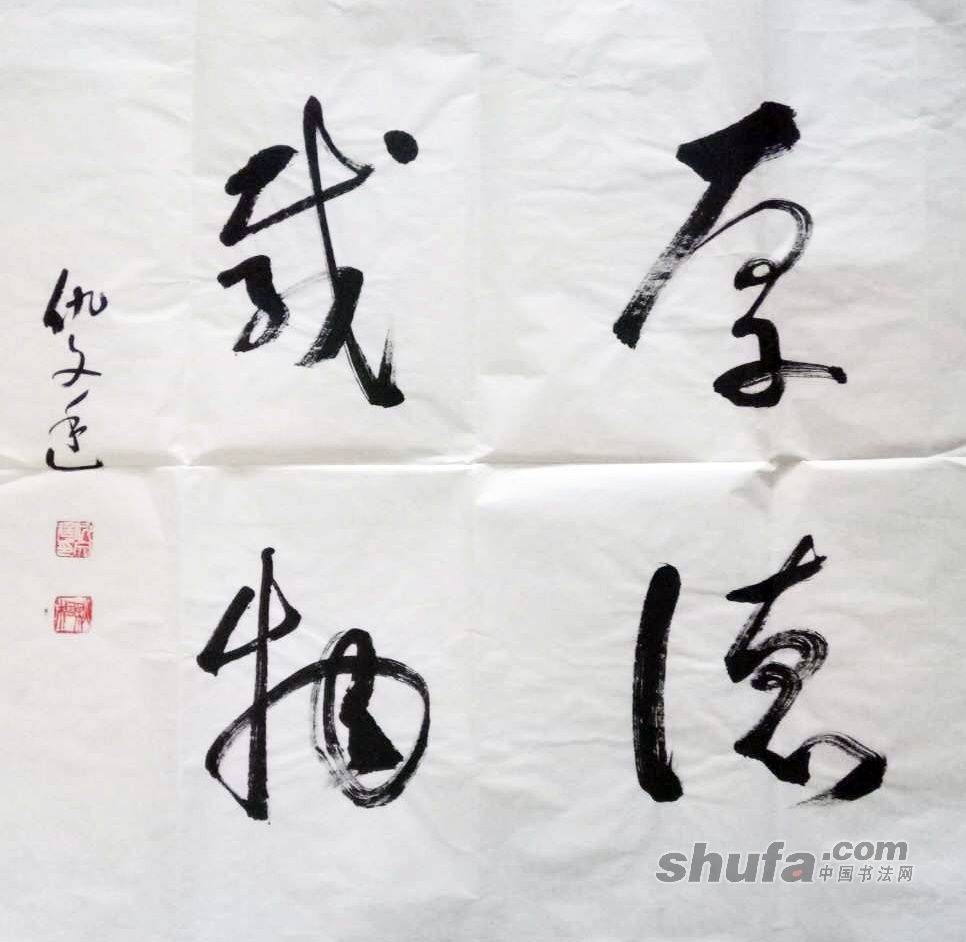 厚德
载物
shufa.com
中国书法网